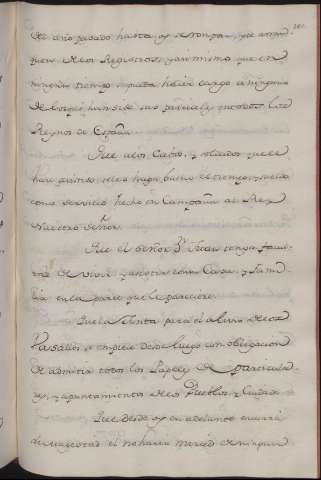 del año pasado hasta oy se rompan, y se arran
quen delos Registros, y asi mismo que en
ningun tiempo se pueda hacer cargo a ninguno
delos que han sido sus parciales en todos los
Reynos de España
Que alos Cabos, y soldados que se
han se les haga bueno el tiempo, y sueldo
como servicio hecho en Campaña al Rey
Nuestro Señor.
Que el Señor Dn Juan tenga
de vivir y asistir con su Casa, y Fami
lia en la parte que le pareciere
Que la Junta para el alivio de los
Vasallos se empiece desde luego con obligacion
de admitir todos los Papeles de particula
res, y apuntamientos delos Pueblos, y Ciudades
Que desde oy en adelante
su Magestad el no haria merced de ninguna